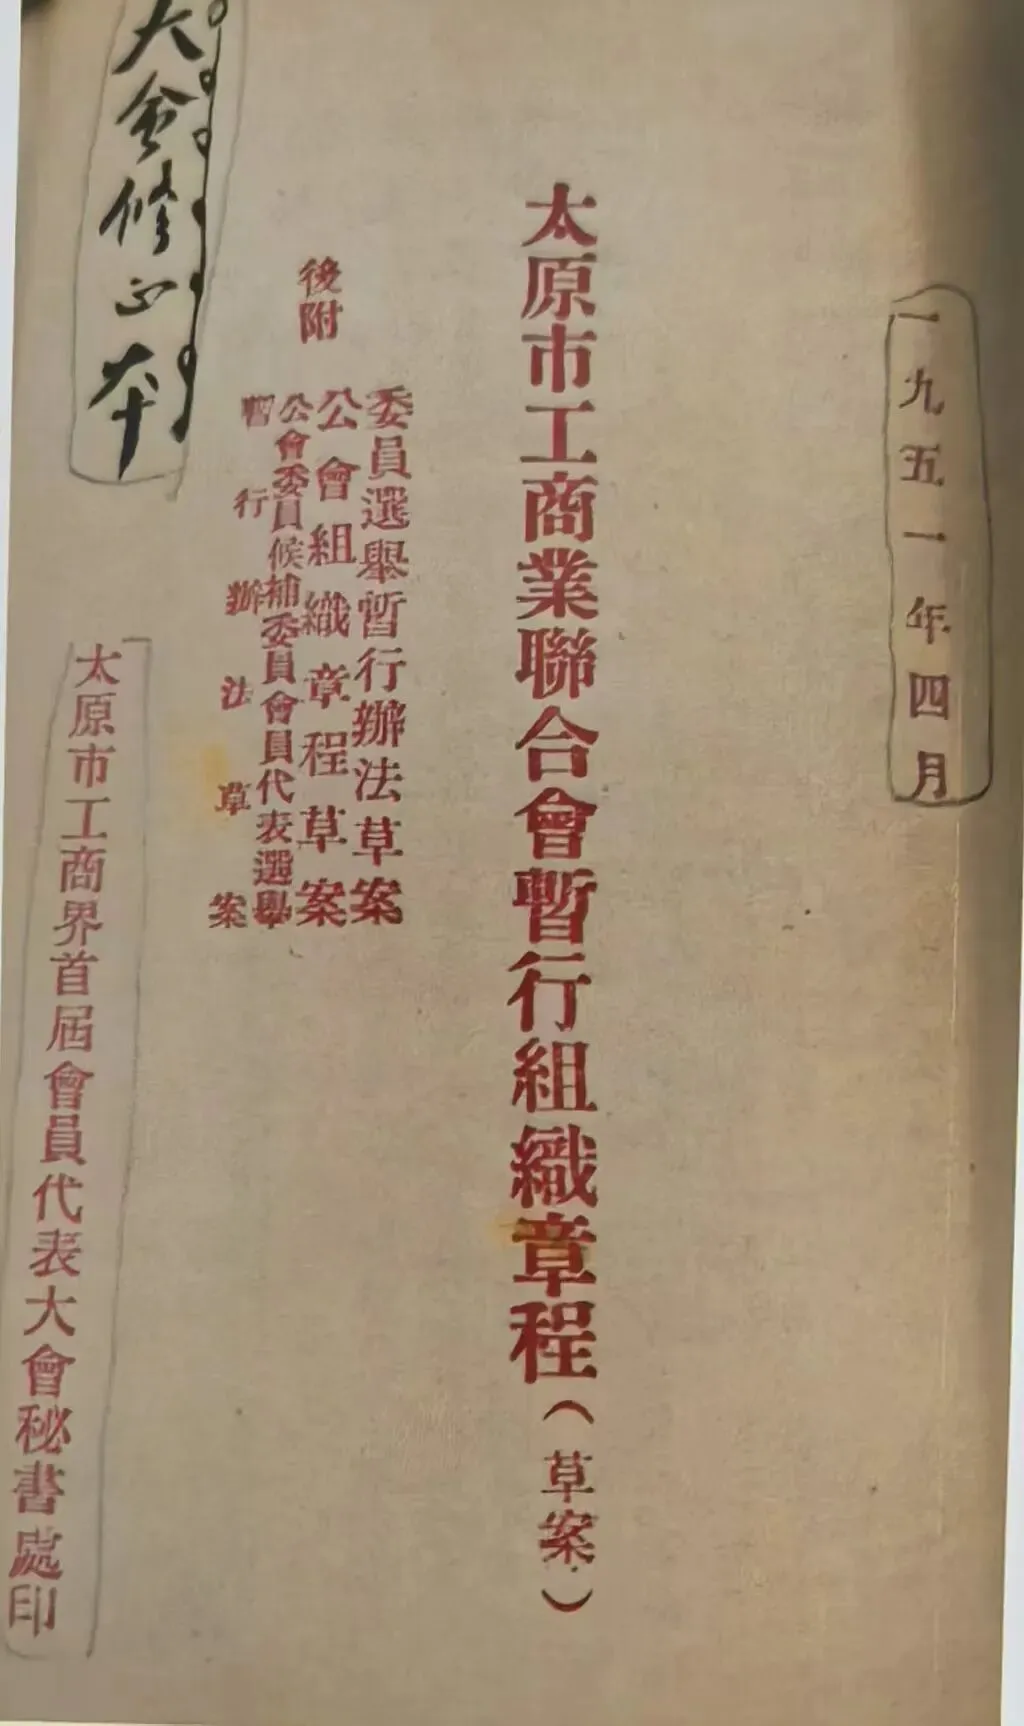 一九五一年四月
太原市工商業聯合會暫行組織章程(草案)
後附
委員選舉暫行辦法草案
公會組織章程草案
公會委員候補委員會員代表選舉
暫行辦法草案
大会修正本
太原市工商界首屆會員代表大會秘書處印